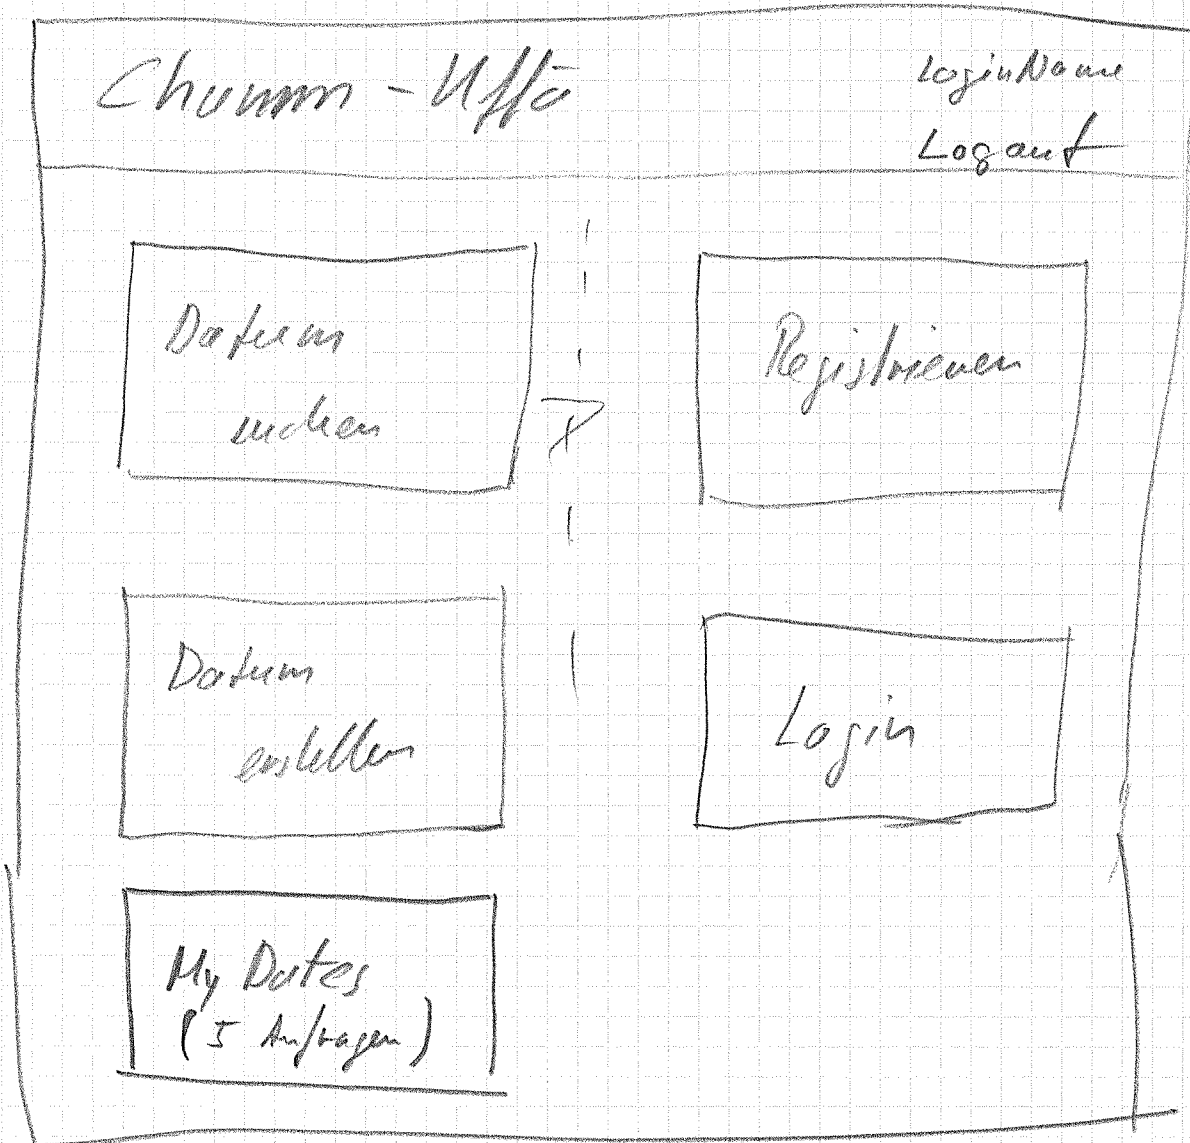 LoginName
Logout
Datum
Registrieren
Datum
erstellen
Login
My Dates
(5 Anfragen)